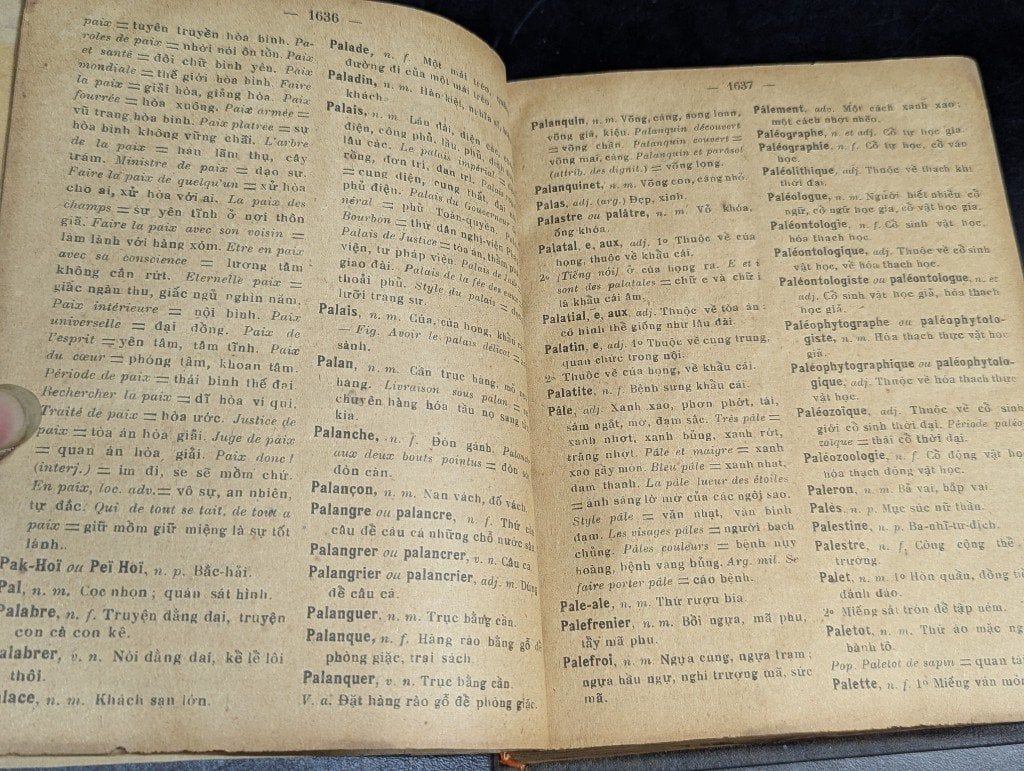 — 1636 —
paix = tuyên truyền hòa bình. Pa-
roles de paix = nhời nói ôn tồn. Paix
et santé = đôi chữ bình yên. Paix
mondiale = thế giới hòa bình. Faire
la paix = giải hòa, giảng hòa. Paix
fourrée = hòa xuống. Paix armée =
vũ trang hòa bình. Paix platrée = sự
hòa bình không vững chãi. L'arbre
de la paix = hàn lãm thụ, cây
trám. Ministre de paix = đạo sư.
Faire la paix de quelqu'un = xử hòa
cho ai, xử hòa với ai. La paix des
champs = sự yên tĩnh ở nơi thôn
giã. Faire la paix avec son voisin =
làm lành với hàng xóm. Etre en paix
avec sa conscience = lương tâm
không cắn rứt. Eternelle paix =
giấc ngàn thu, giấc ngủ nghìn năm.
Paix intérieure = nội bình. Paix
universelle = đại đồng. Paix de
l'esprit = yên tâm, tâm tĩnh. Paix
du cœur = phóng tâm, khoan tâm.
Période de paix = thái bình thế đại
Rechercher la paix = dĩ hòa vi qui.
Traité de paix = hòa ước. Justice de
paix = tòa án hòa giải. Juge de paix
= quan án hòa giải. Paix donc!
(interj.) = im đi, se sẽ mồm chứ.
En paix, loc. adv. = vô sự, an nhiên,
tự đắc. Qui de tout se tait, de tout a
paix = giữ mồm giữ miệng là sự tốt
lành.
Pak-Hoï ou Peï Hoï, n. p. Bắc-hải.
Pal, n. m. Cọc nhọn; quán sát hình.
Palabre, n. f. Truyện dằng dai, truyện
con cà con kê.
alabrer, v. n. Nói dằng dai, kề lề lôi
thôi.
lace, n. m. Khách sạn lớn.
Palade, n. f. Một mái trèo,
đường đi của một mái trèo.
Paladin, n. m. Hào kiệt, nghĩa sĩ,
khách.
Palais, n. m. Lâu đài, điện các,
điện, công phủ, lầu, phủ,
lâu các. Le palais impérial =
rồng, đơn trì, đan trì. Palais
= cung điện, cung thất, đại
phủ điện. Palais du Gouverneur
néral = phủ Toàn-quyền.
Bourbon = thứ dân nghị-viện
Palais de Justice = tòa án, thẩm
viện, tư pháp viện. Palais de
giao đài. Palais de la fée des eaux
thoải phủ. Style du palais =
lưỡi trạng sư.
Palais, n. m. Cúa, cúa họng, khẩu
— Fig. Avoir le palais délicat =
sành.
Palan, n. m. Cần trục hàng,
hàng. Livraison sous palan =
chuyên hàng hóa tầu nọ sang
kia.
Palanche, n. f. Đòn gánh.
aux deux bouts pointus = đòn
đòn càn.
Palançon, n. m. Nan vách, đố vách.
Palangre ou palancre, n. f. Thứ
câu để câu cá những chỗ nước
Palangrer ou palancrer, v. n. Câu cá
Palangrier ou palancrier, adj. m. Dùng
để câu cá.
Palanguer, n. m. Trục bằng cần.
Palanque, n. f. Hàng rào bằng gỗ để
phòng giặc, trại sách.
Palanquer, v. n. Trục bằng cần.
V. a. Đặt hàng rào gỗ để phòng giặc.
— 1637 —
Palanquin, n. m. Võng, cáng, song loan,
võng giá, kiệu. Palanquin découvert
= võng chân. Palanquin couvert =
võng mái, cáng. Palanquin et parasol
(attrib. des dignit.) = võng lọng.
Palanquinet, n. m. Võng con, cáng nhỏ.
Palas, adj. (arg.) Đẹp, xinh.
Palastre ou palâtre, n. m. Vỏ khóa,
ống khóa.
Palatal, e, aux, adj. 1º Thuộc về cúa
họng, thuộc về khẩu cái.
2º (Tiếng nói) ở cúa họng ra. E et i
sont des palatales = chữ e và chữ i
là khẩu cái âm.
Palatial, e, aux, adj. Thuộc về tòa án;
có hình thế giống như lâu đài.
Palatin, e, adj. 1º Thuộc về cung trung,
quan chức trong nội.
2º Thuộc về cúa họng, về khẩu cái.
Palatite, n. f. Bệnh sưng khẩu cái.
Pâle, adj. Xanh xao, phơn phớt, tái,
sám ngắt, mờ, đạm sắc. Très pâle =
xanh nhợt, xanh bủng, xanh rớt,
trắng nhợt. Pâle et maigre = xanh
xao gầy mòn. Bleu pâle = xanh nhạt,
đạm thanh. La pâle lueur des étoiles
= ánh sáng lờ mờ của các ngôi sao.
Style pâle = văn nhạt, văn bình
đạm. Les visages pâles = người bạch
chủng. Pâles couleurs = bệnh nuy
hoàng, bệnh vàng bủng. Arg. mil. Se
faire porter pâle = cáo bệnh.
Pale-ale, n. m. Thứ rượu bia.
Palefrenier, n. m. Bồi ngựa, mã phu,
tẩy mã phu.
Palefroi, n. m. Ngựa cung, ngựa trạm;
ngựa hầu ngự, nghi trượng mã, sức
mã.
Pâlement, adv. Một cách xanh xao;
một cách nhợt nhẽo.
Paléographe, n. et adj. Cổ tự học gia.
Paléographie, n. f. Cổ tự học, cổ văn
học.
Paléolithique, adj. Thuộc về thạch khí
thời đại.
Paléologue, n. m. Người biết nhiều cổ
ngữ, cổ ngữ học gia, cổ vật học gia.
Paléontologie, n. f. Cổ sinh vật học,
hóa thạch học.
Paléontologique, adj. Thuộc về cổ sinh
vật học, về hóa thạch học.
Paléontologiste ou paléontologue, n. et
adj. Cổ sinh vật học giả, hóa thạch
học giả.
Paléophytographe ou paléophytolo-
giste, n. m. Hóa thạch thực vật học
giả.
Paléophytographique ou paléophytolo-
gique, adj. Thuộc về hóa thạch thực
vật học.
Paléozoïque, adj. Thuộc về cổ sinh
giới cổ sinh thời đại. Période paléo-
zoïque = thái cổ thời đại.
Paléozoologie, n. f. Cổ động vật học
hóa thạch động vật học.
Paleron, n. m. Bả vai, bắp vai.
Palès, n. p. Mục súc nữ thần.
Palestine, n. p. Ba-nhĩ-tư-địch.
Palestre, n. f. Công cộng thể
trường.
Palet, n. m. 1º Hòn quần, đồng
đánh đáo.
2º Miếng sắt tròn để tập ném.
Paletot, n. m. Thứ áo mặc
bành tô.
Pop. Paletot de sapin = quan tài
Palette, n. f. 1º Miếng ván